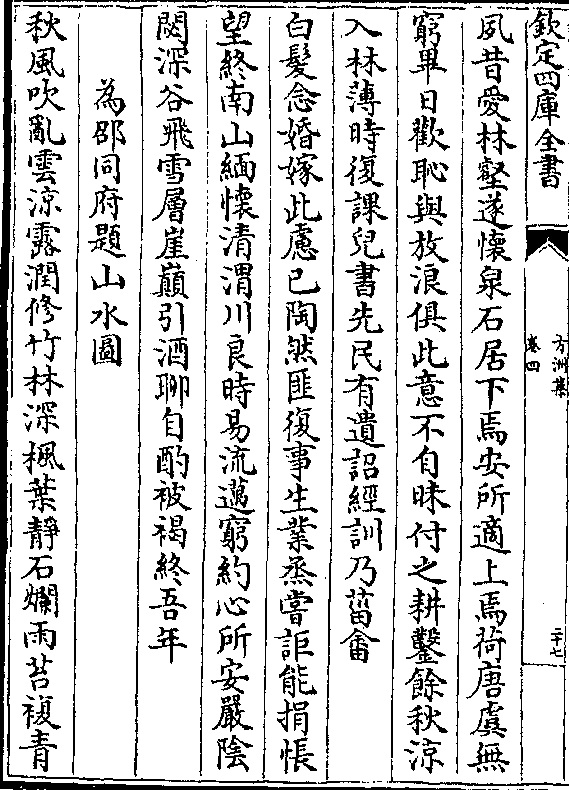 欽定四庫全書
方洲集
卷四
二十七
夙昔愛林壑遂懷泉石居下焉安所適上焉荷唐虞無
窮畢日歡恥與放浪俱此意不自昧付之耕鑿餘秋涼
入林薄時復課兒書先民有遺詔經訓乃菑畬
白髮念婚嫁此慮已陶然匪復事生業烝嘗詎能捐悵
望終南山緬懷清渭川良時易流邁窮約心所安嚴陰
閟深谷飛雪層崖巔引酒聊自酌被褐終吾年
為邵同府題山水圖
秋風吹亂雲涼露潤修竹林深楓葉靜石爛雨苔複青